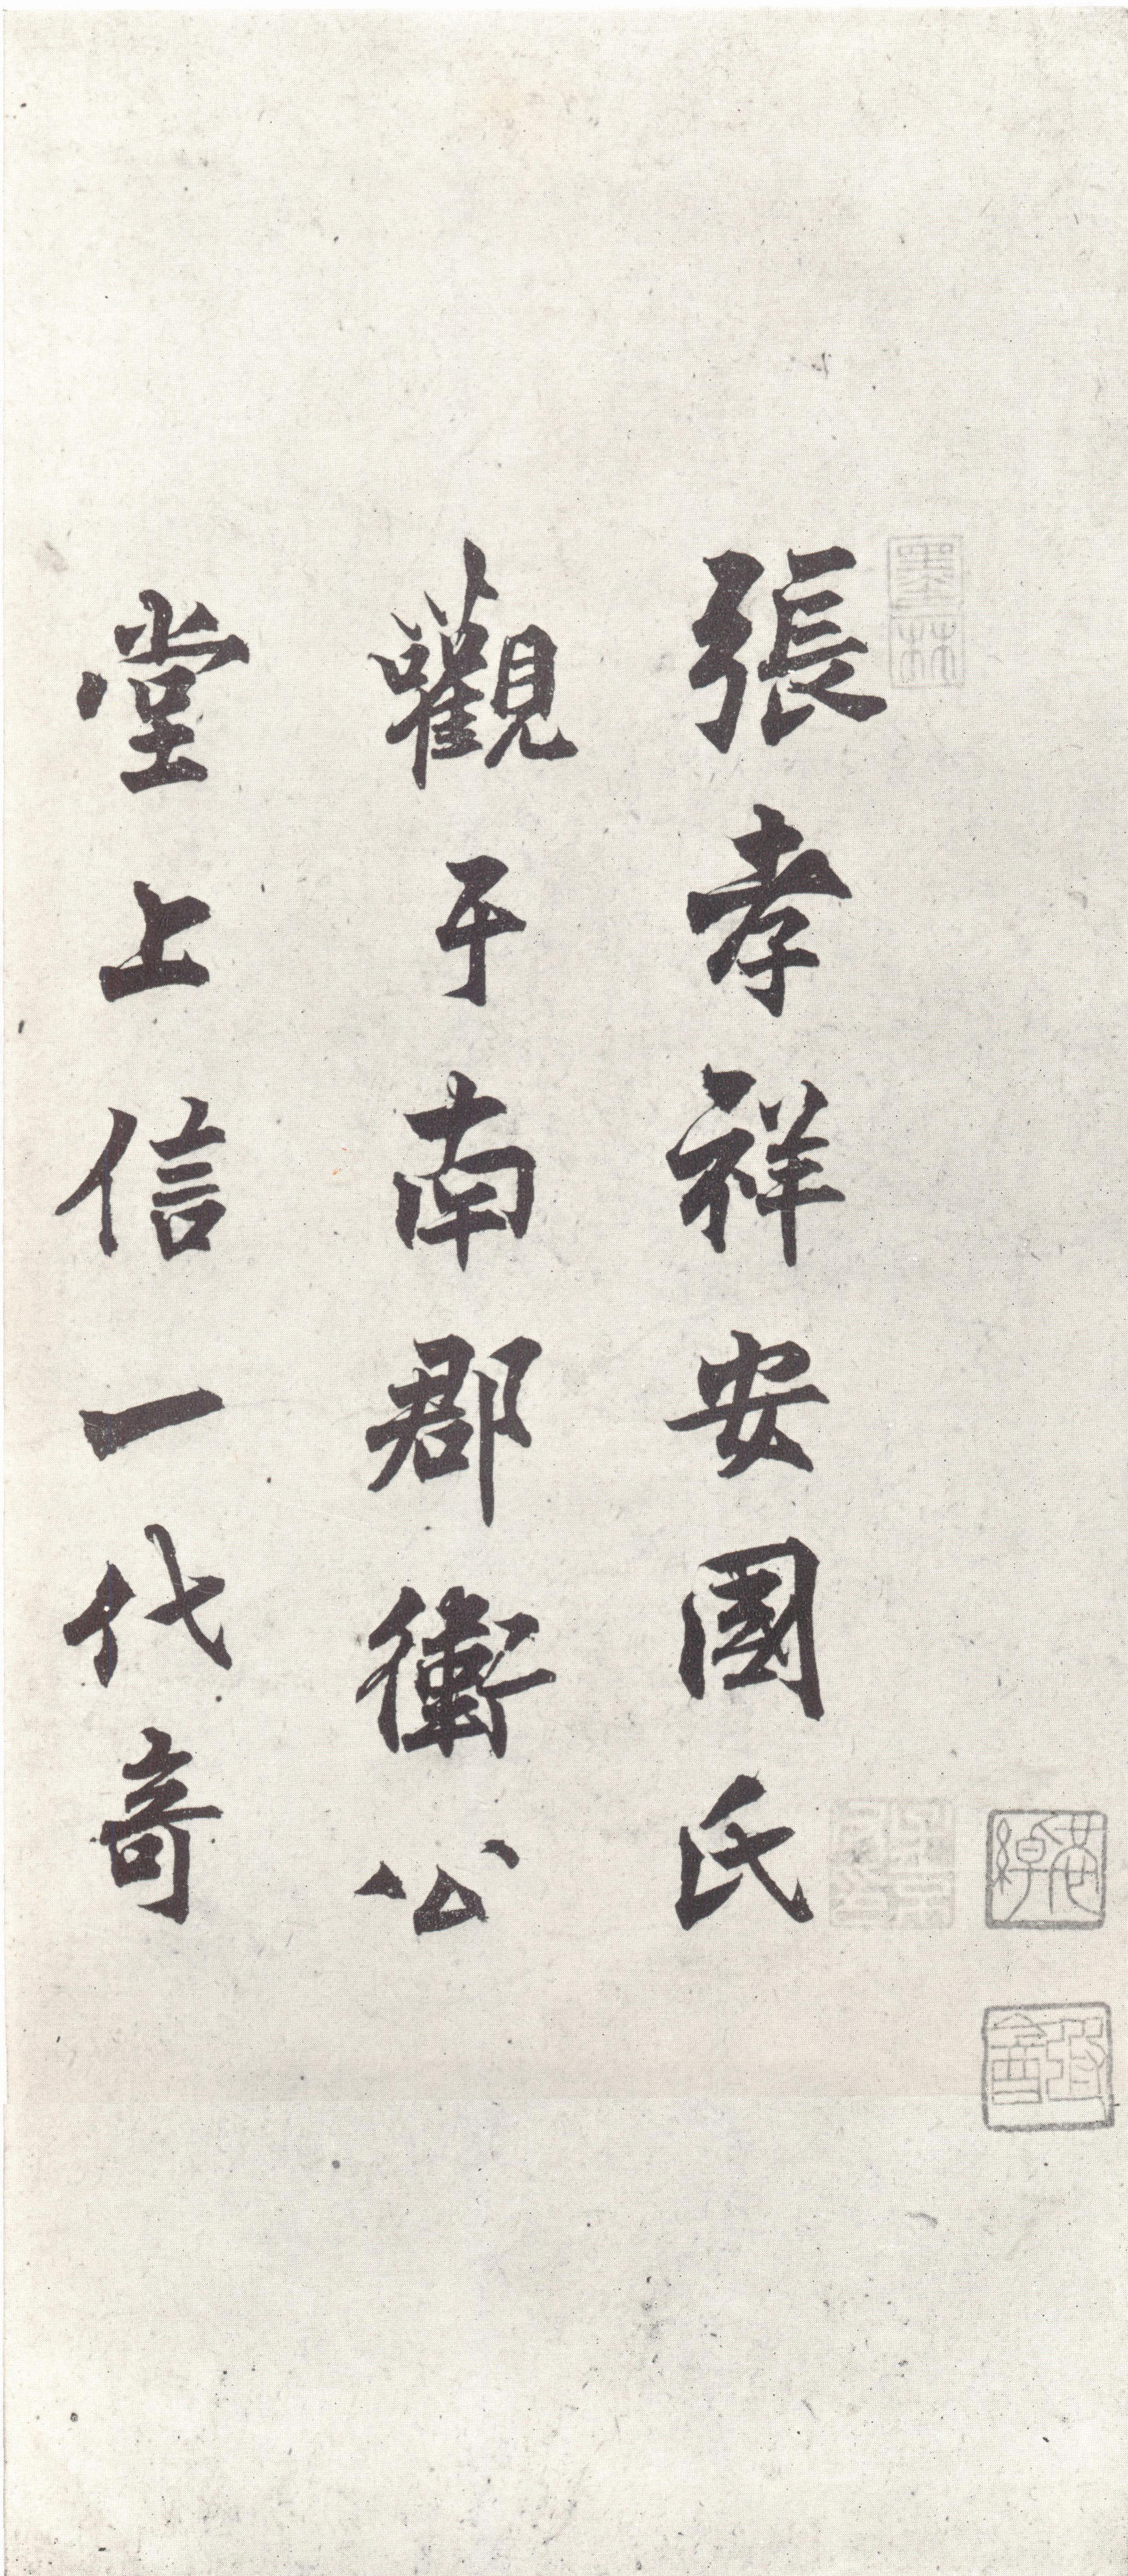 張孝祥安國氏
觀于南郡衞公
堂上信一代奇
墨林